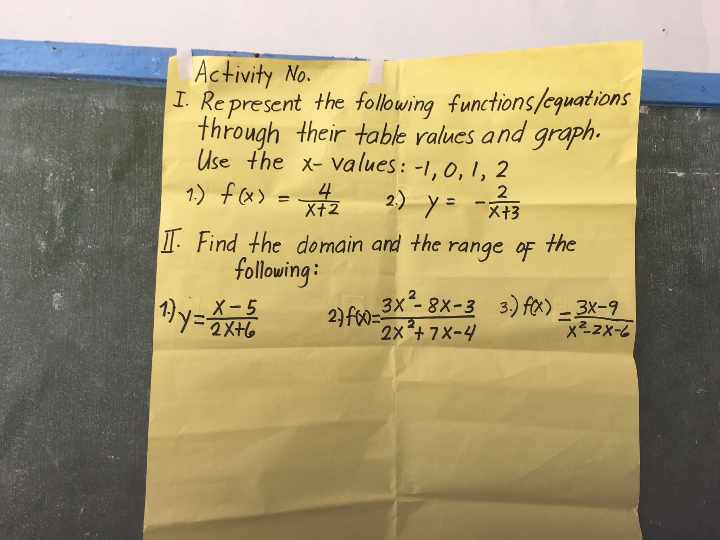 Activity No.
I. Represent the following functions/equations
through their table values and graph.
Use the x- values: -1, 0, 1, 2
1.) f(x) = 4/x+2 2.) y = - 2/x+3
II. Find the domain and the range of the
following:
1.) y = x-5/2x+6 2.) f(x) = 3x²-8x-3/2x²+7x-4 3.) f(x) = 3x-9/x²-2x-6